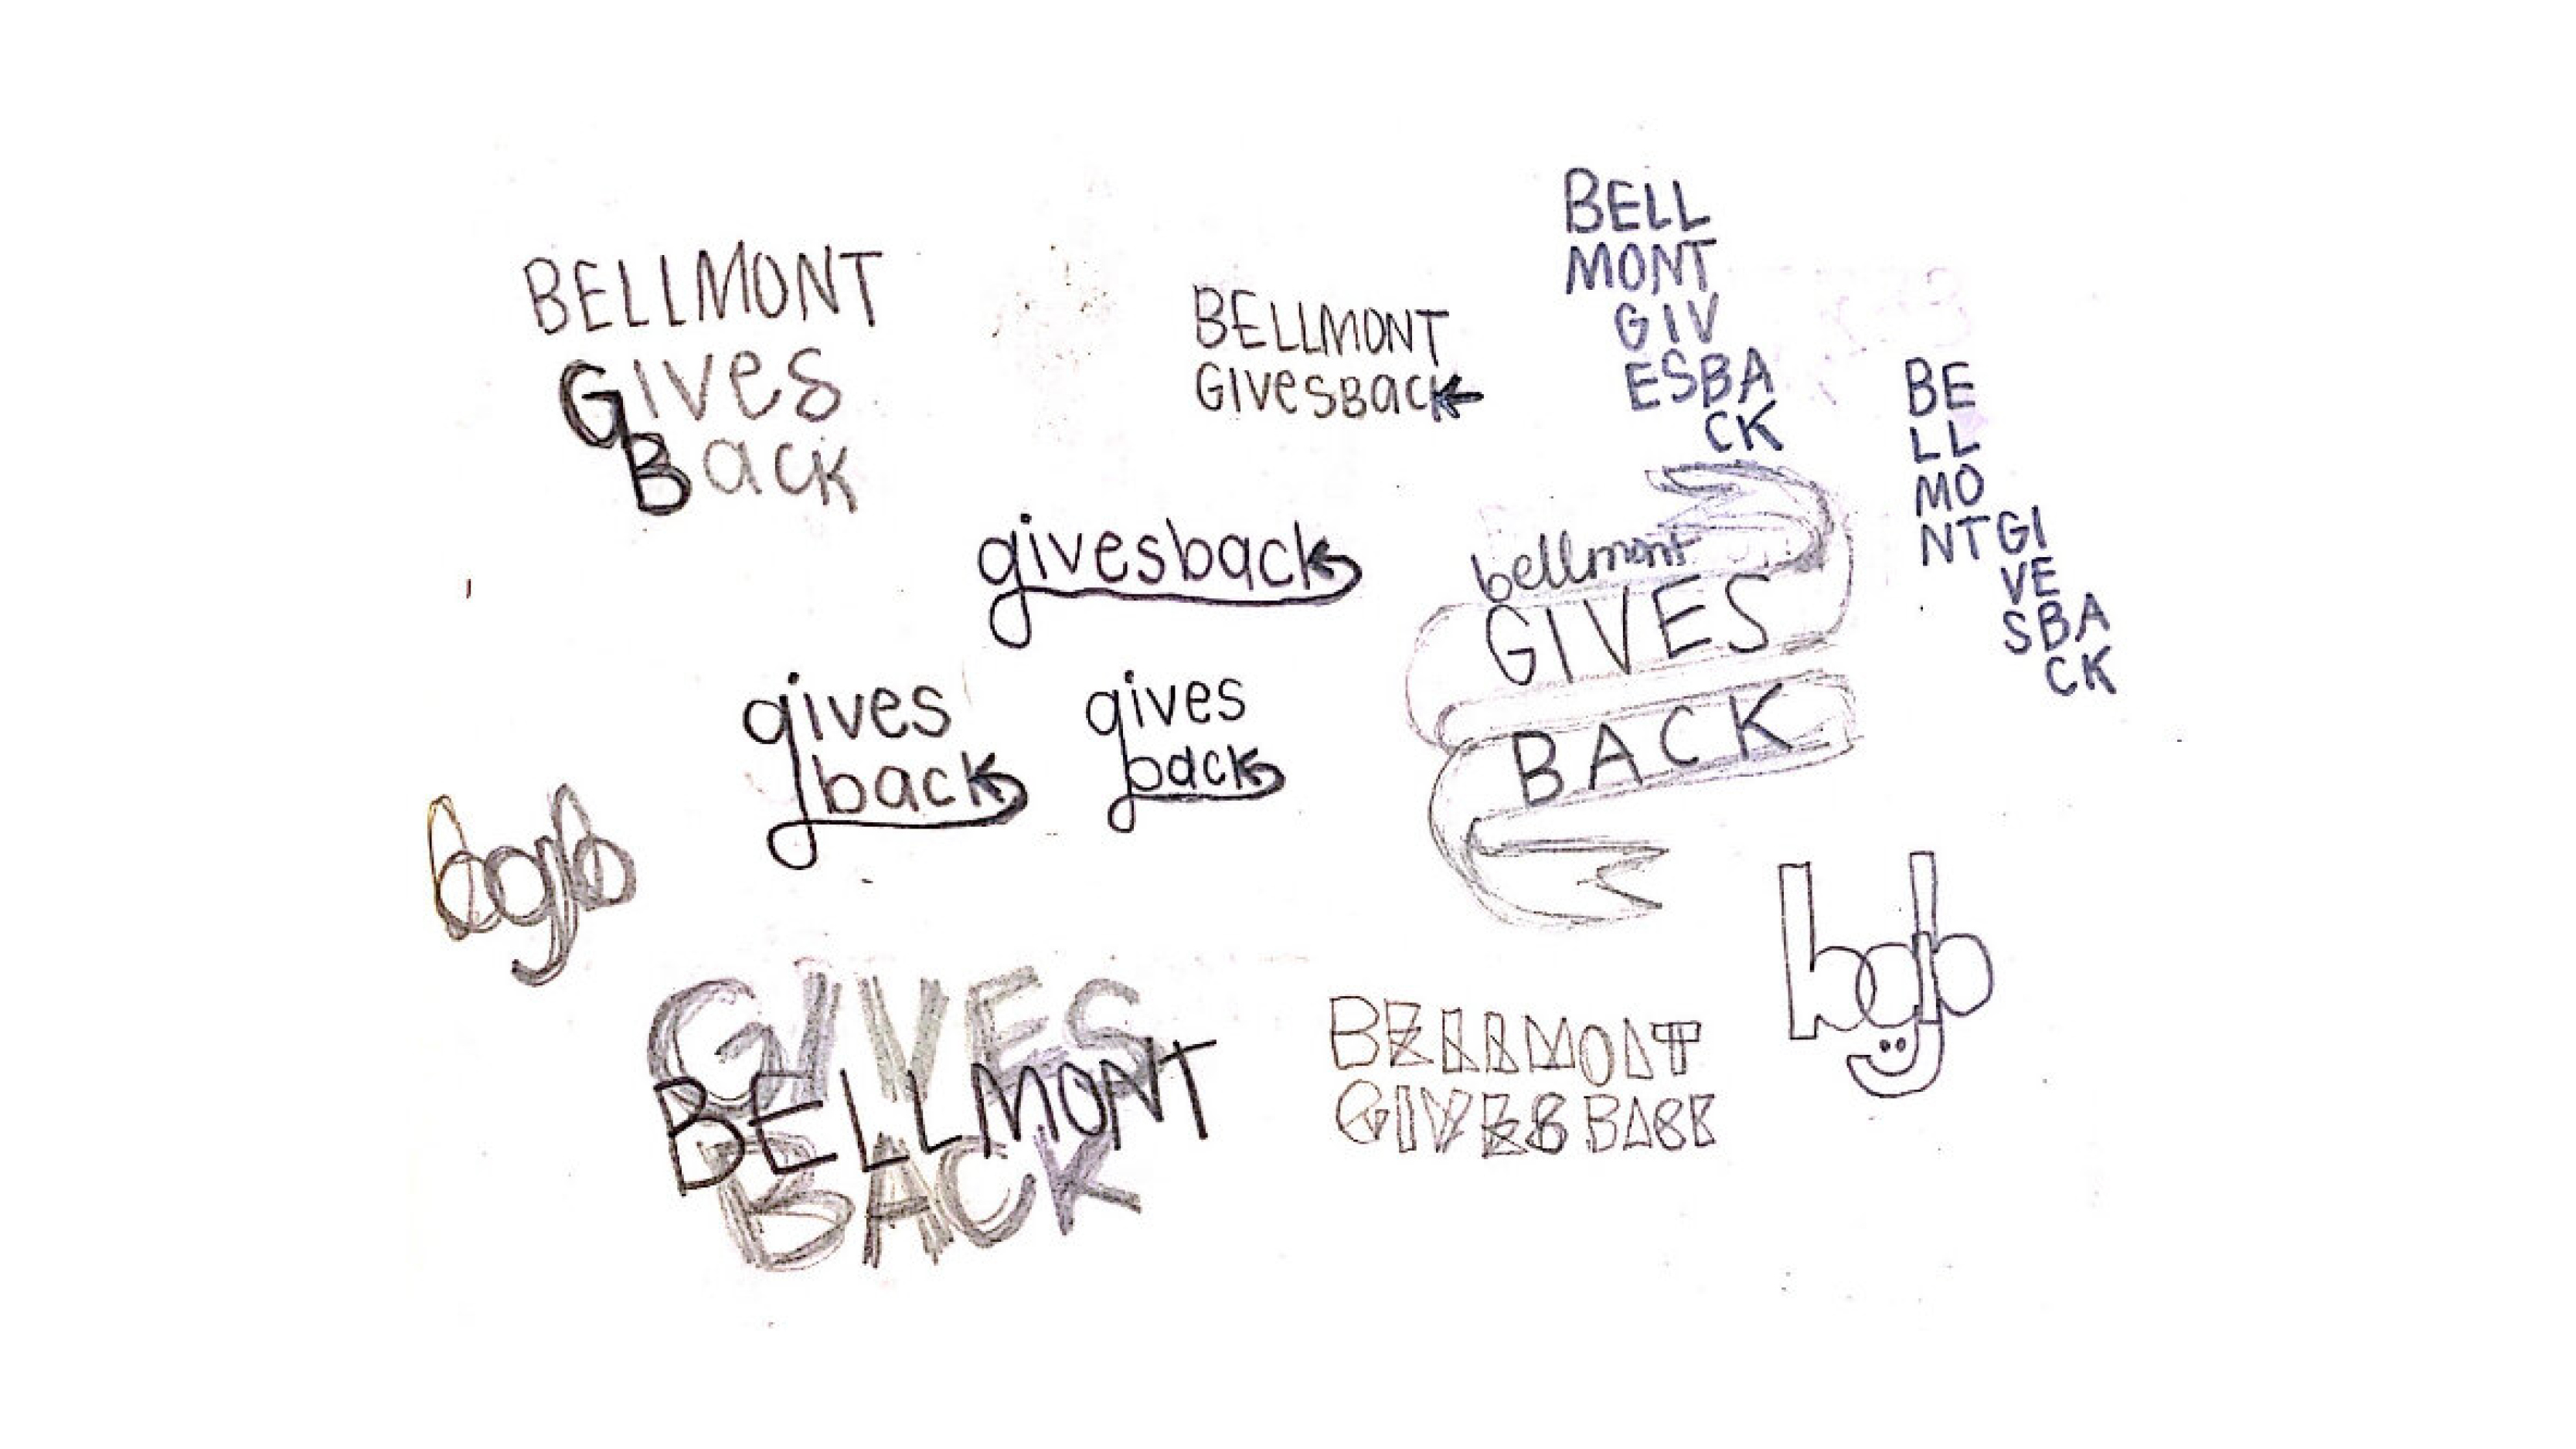 BELLMONT
Gives
Back
BELLMONT
GIVesBacK
BELL
MONT
GIV
ESBA
CK
BE
LL
MO
NTGI
VE
SBA
CK
givesback
bellmont
GIVES
BACK
gives
back
gives
back
bgb
bgb
GIVES
BELLMONT
BACK
BELLMONT
GIVES BACK